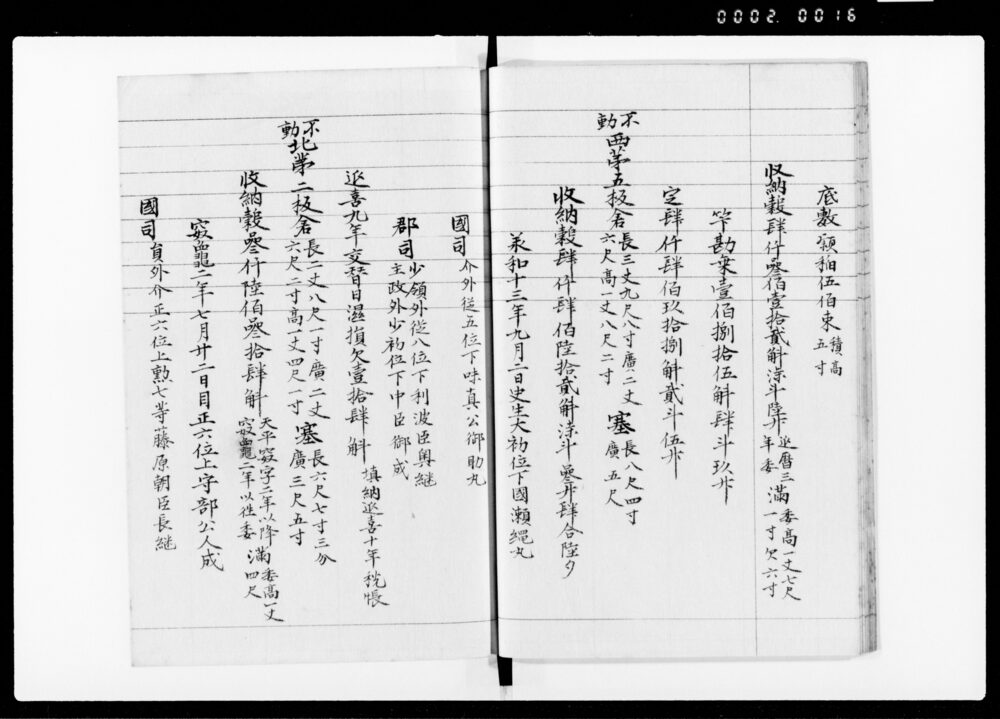 0002.0016
底數 穎稻伍伯束 積高五寸
收納穀肆仟叄佰壹拾貳斛柒斗陸升 延曆三年委 滿 委高一丈七尺一寸欠六寸
竿勘棄壹佰捌拾伍斛肆斗玖升
定肆仟肆佰玖拾捌斛貳斗伍升
不動 西第五板倉 長三丈九尺八寸廣二丈六尺高一丈八尺二寸 塞 長八尺四寸廣五尺
收納穀肆仟肆佰陸拾貳斛柒斗叄升肆合陸夕
承和十三年九月二日史生大初位下國瀨縄丸
國司 介外從五位下味真公御助丸
郡司 少領外從八位下利波臣奥継
主政外少初位下中臣御成
延喜九年交替日濕損欠壹拾肆斛 填納延喜十年税帳
不動 北第二板倉 長二丈八尺一寸廣二丈六尺二寸高一丈四尺一寸 塞 長六尺七寸三分廣三尺五寸
收納穀叄仟陸佰叄拾肆斛 天平寳字二年以降寳龜二年以徃委 滿 委高一丈四尺
寳龜二年七月廿二日目正六位上守部公人成
國司 員外介正六位上勲七等藤原朝臣長継